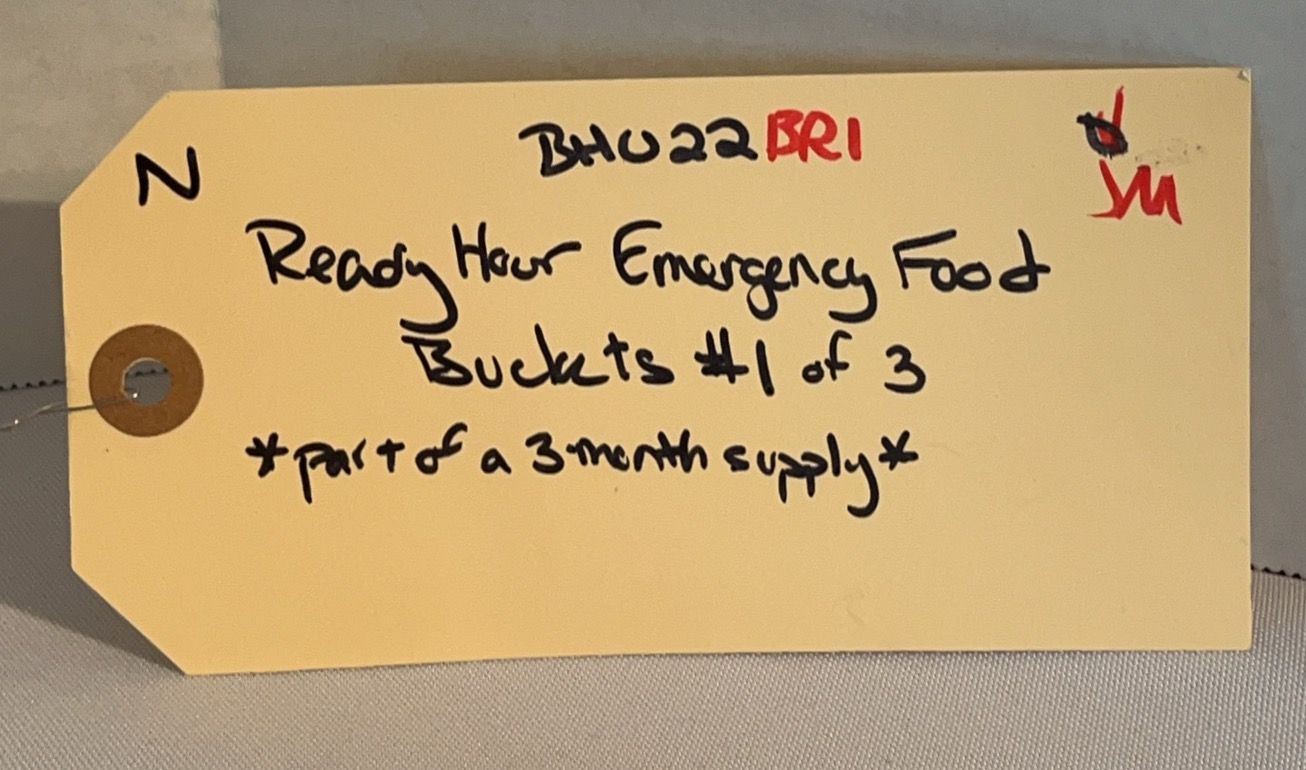 N
BHU22BR1
JM
Ready Hour Emergency Food
Buckets #1 of 3
*part of a 3-month supply*